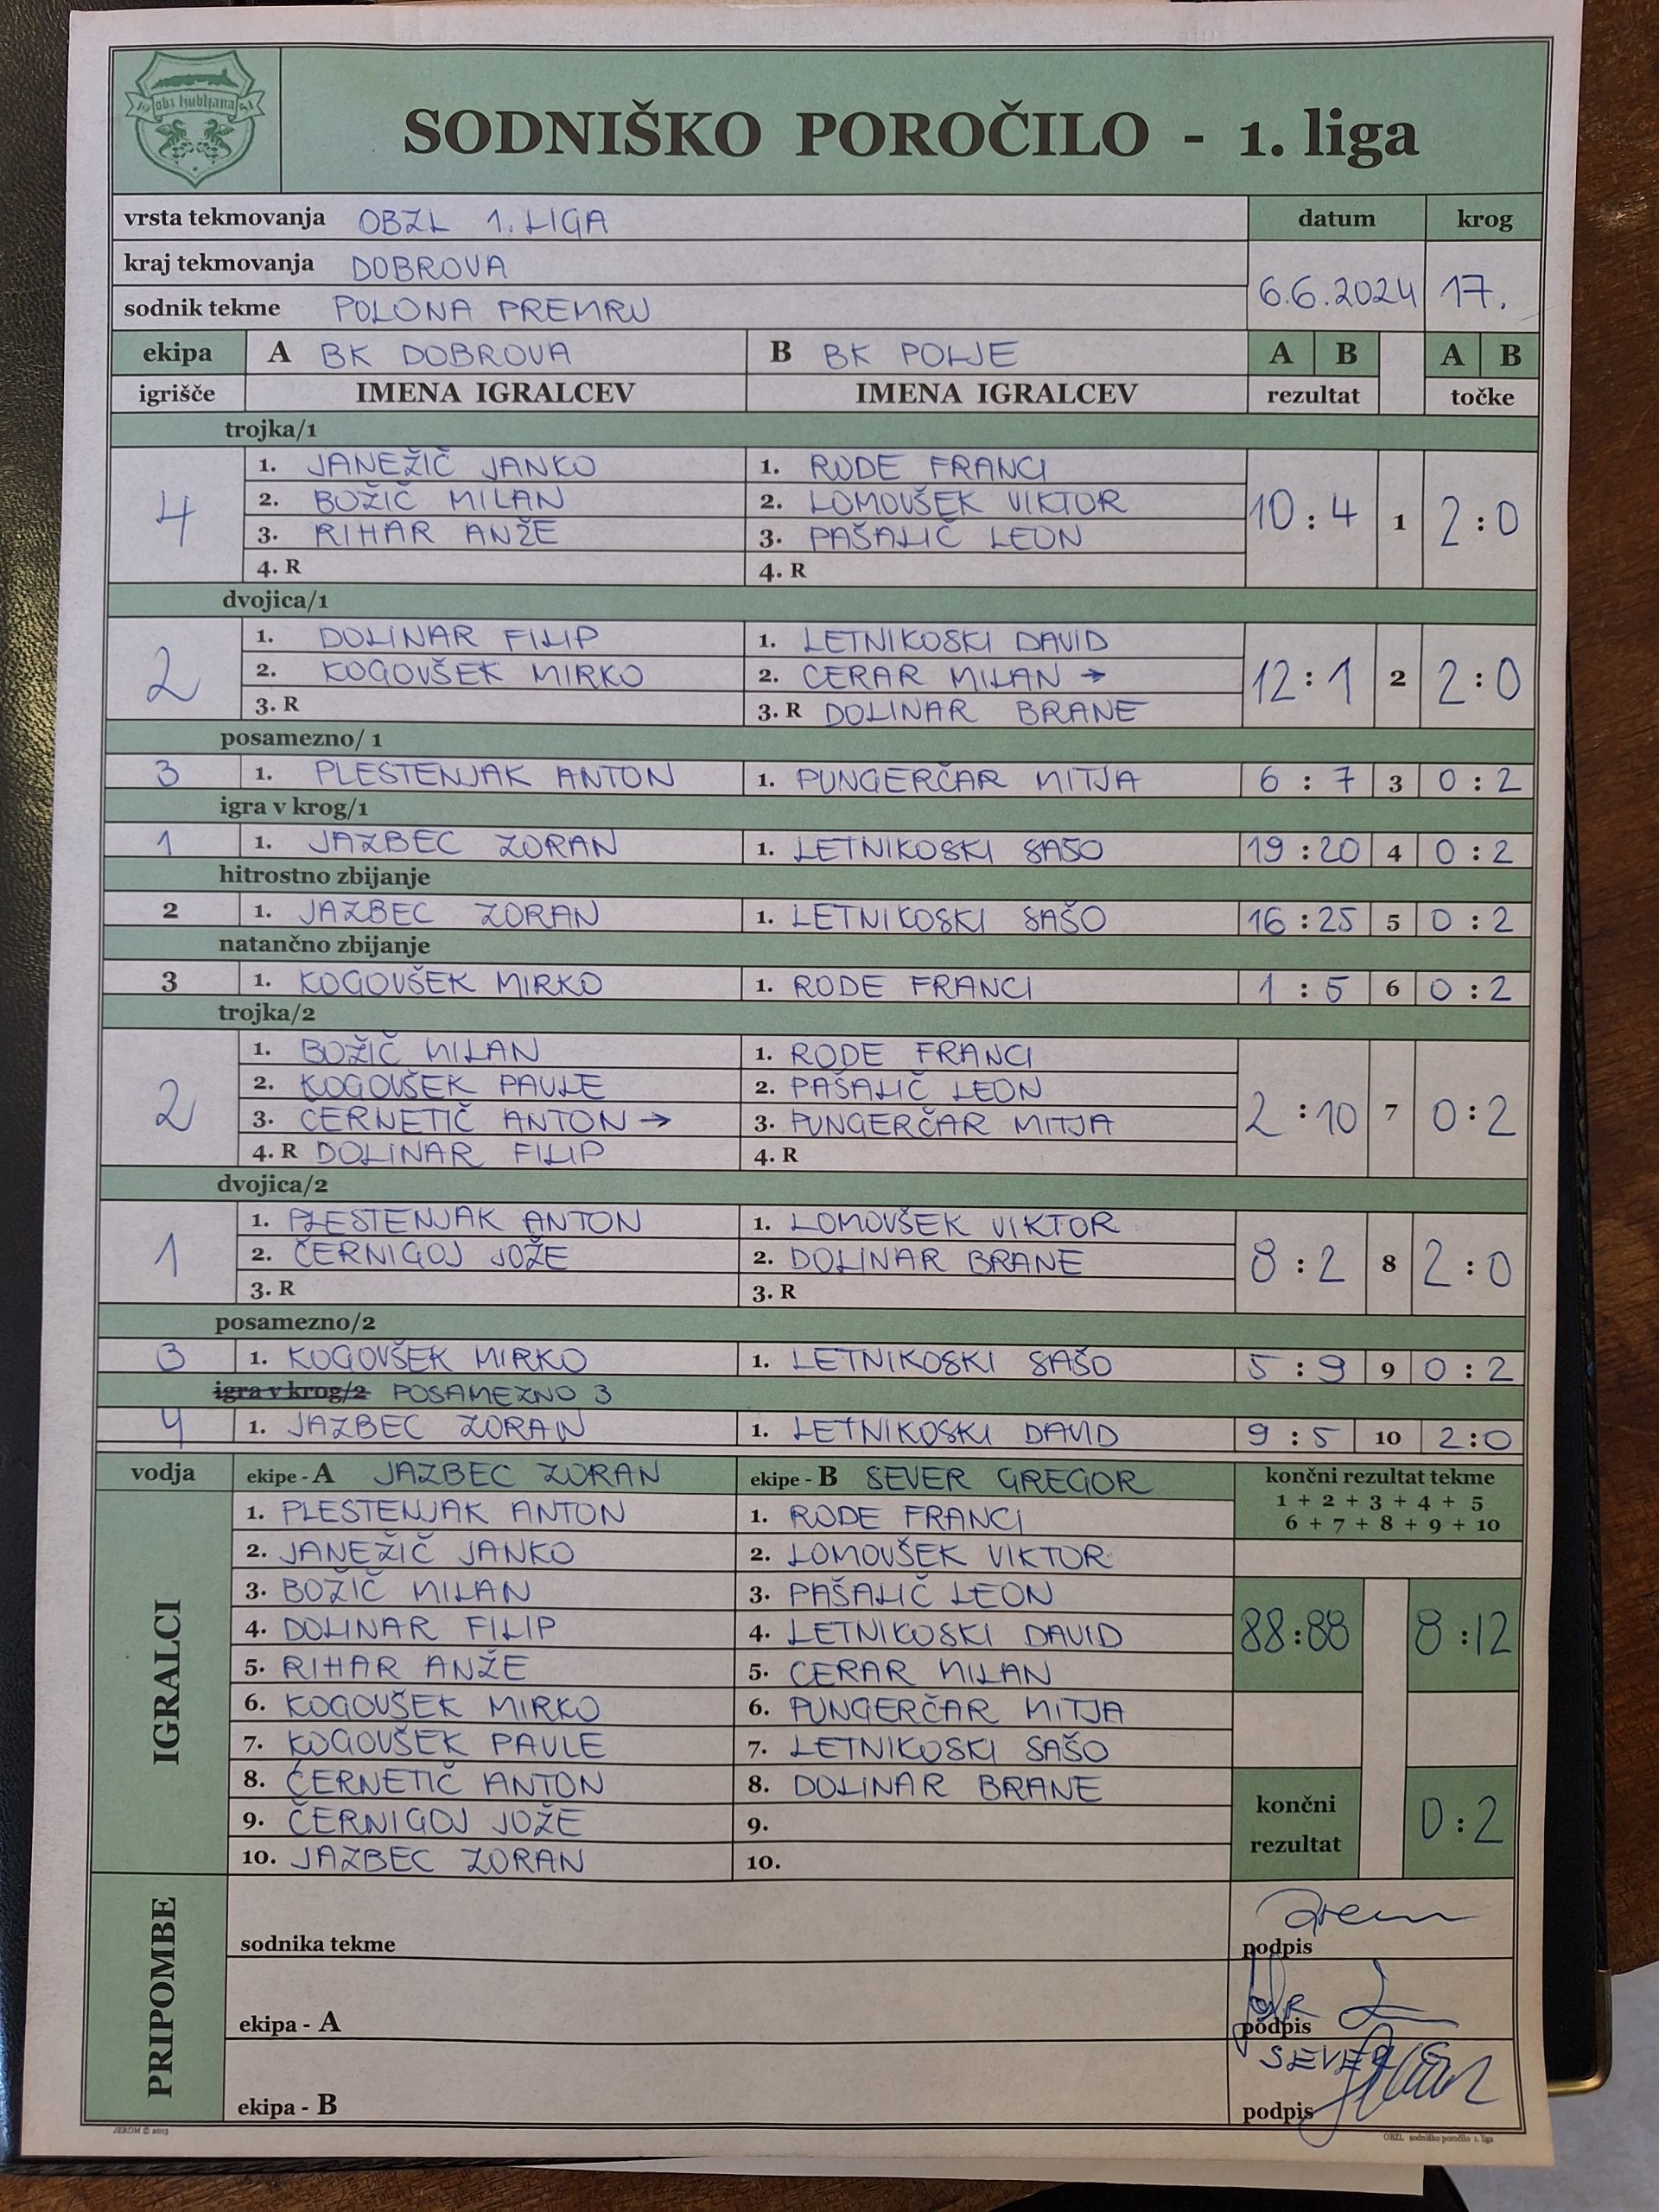 obz ljubljana
SODNIŠKO POROČILO - 1. liga
vrsta tekmovanja OBZL 1. LIGA datum krog
kraj tekmovanja DOBROVA 6.6.2024 17.
sodnik tekme POLONA PREMRU
ekipa A BK DOBROVA B BK POLJE A B A B
igrišče IMENA IGRALCEV IMENA IGRALCEV rezultat točke
trojka/1
4 1. JANEŽIČ JANKO 1. RODE FRANCI 10 : 4 1 2 : 0
2. BOŽIČ MILAN 2. LOMOVŠEK VIKTOR
3. RIHAR ANŽE 3. PAŠALIČ LEON
4. R 4. R
dvojica/1
2 1. DOLINAR FILIP 1. LETNIKOSKI DAVID 12 : 1 2 2 : 0
2. KOGOVŠEK MIRKO 2. CERAR MILAN →
3. R 3. R DOLINAR BRANE
posamezno/ 1
3 1. PLESTENJAK ANTON 1. PUNGERČAR MITJA 6 : 7 3 0 : 2
igra v krog/1
1 1. JAZBEC ZORAN 1. LETNIKOSKI SAŠO 19 : 20 4 0 : 2
hitrostno zbijanje
2 1. JAZBEC ZORAN 1. LETNIKOSKI SAŠO 16 : 25 5 0 : 2
natančno zbijanje
3 1. KOGOVŠEK MIRKO 1. RODE FRANCI 1 : 5 6 0 : 2
trojka/2
2 1. BOŽIČ MILAN 1. RODE FRANCI 2 : 10 7 0 : 2
2. KOGOVŠEK PAVLE 2. PAŠALIČ LEON
3. ČERNETIČ ANTON → 3. PUNGERČAR MITJA
4. R DOLINAR FILIP 4. R
dvojica/2
1 1. PLESTENJAK ANTON 1. LOMOVŠEK VIKTOR 8 : 2 8 2 : 0
2. ČERNIGOJ JOŽE 2. DOLINAR BRANE
3. R 3. R
posamezno/2
3 1. KOGOVŠEK MIRKO 1. LETNIKOSKI SAŠO 5 : 9 9 0 : 2
igra v krog/2 POSAMEZNO 3
4 1. JAZBEC ZORAN 1. LETNIKOSKI DAVID 9 : 5 10 2 : 0
vodja ekipe - A JAZBEC ZORAN ekipe - B SEVER GREGOR končni rezultat tekme
1 + 2 + 3 + 4 + 5
6 + 7 + 8 + 9 + 10
IGRALCI
1. PLESTENJAK ANTON 1. RODE FRANCI
2. JANEŽIČ JANKO 2. LOMOVŠEK VIKTOR
3. BOŽIČ MILAN 3. PAŠALIČ LEON
4. DOLINAR FILIP 4. LETNIKOSKI DAVID 88 : 88 8 : 12
5. RIHAR ANŽE 5. CERAR MILAN
6. KOGOVŠEK MIRKO 6. PUNGERČAR MITJA
7. KOGOVŠEK PAVLE 7. LETNIKOSKI SAŠO
8. ČERNETIČ ANTON 8. DOLINAR BRANE
9. ČERNIGOJ JOŽE 9.
10. JAZBEC ZORAN 10.
končni rezultat 0 : 2
PRIPOMBE
sodnika tekme podpis
ekipa - A podpis
SEVER
ekipa - B podpis
JEROM © 2013 OBZL sodniško poročilo 1. liga